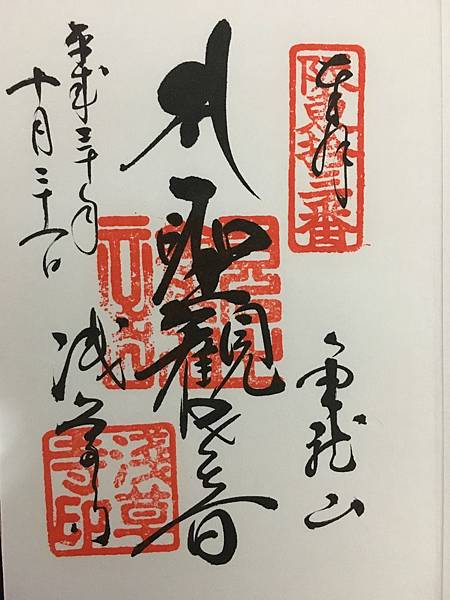 阪東拾三番
奉拝
金龍山
聖觀世音
平成三十年
十月二十日
浅草寺
淺草寺印